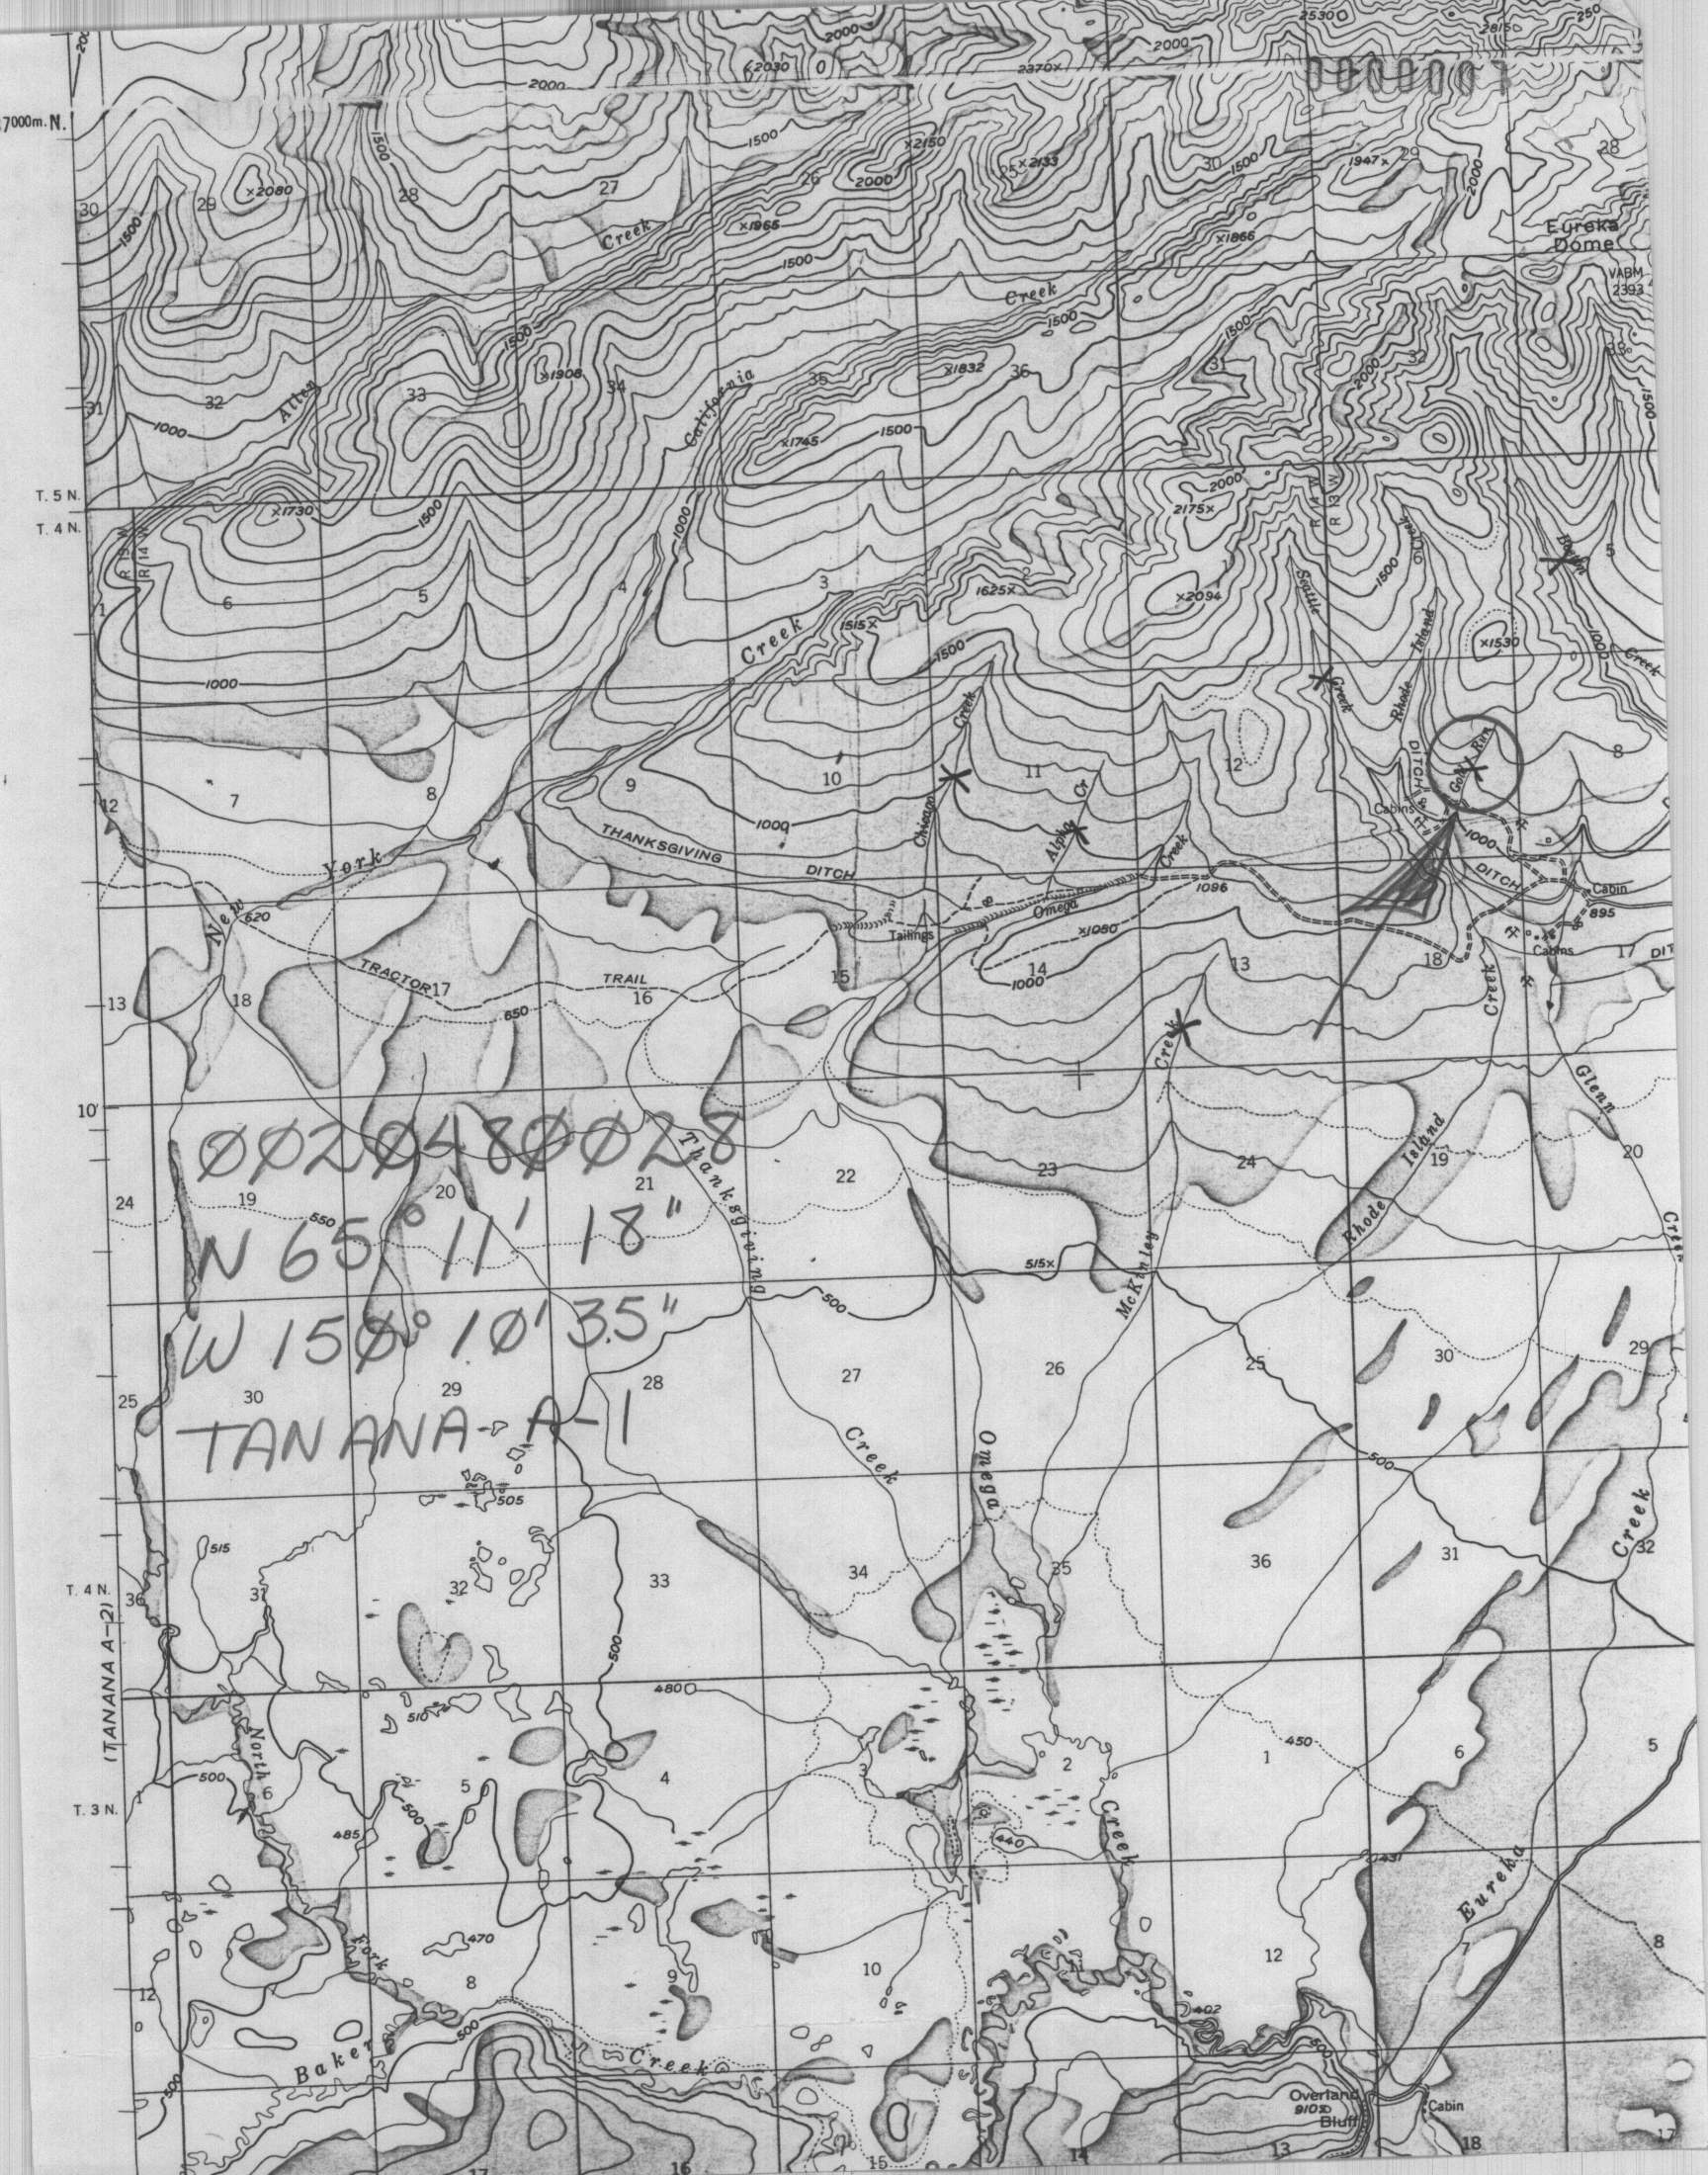 2000
2530
2815
250
2000
2030
2000
2370
2000
7000m. N.
1500
1500
2150
2133
25
26
2000
30
1500
1947
29
28
2000
30
29
2080
28
27
1500
Creek
1965
1866
Eureka
Dome
1500
VABM
2393
Creek
1500
1500
1500
33
31
32
Allen
33
1908
34
California
35
1832
36
31
32
2000
1500
1000
1745
1500
T. 5 N.
T. 4 N.
1730
1500
1000
2000
2175
R 14 W
R 13 W
R 15 W
R 14 W
Creek
1500
5
1
6
5
4
3
1625
2094
Seattle
Island
1530
1000
Creek
Creek
1515
1500
1000
Creek
Creek
Rhode
Gold Run
8
DITCH
12
7
8
9
10
11
12
Cabins
Chicago
Alpha
Cr
Creek
1000
1000
THANKSGIVING
DITCH
York
1096
DITCH
Cabin
895
New
620
Tailings
Omega
1050
Cabins
17
DIT
TRACTOR
17
TRAIL
16
15
14
1000
13
18
13
18
650
Creek
Creek
Glenn
10'
0020480028
Thanksgiving
22
23
24
Island
19
20
24
19
20
21
550
N 65° 11' 18"
Rhode
Creek
515
McKinley
500
W 150° 10' 35"
25
30
29
28
27
26
25
30
29
TANANA A-1
Creek
Omega
500
505
515
Creek
32
T. 4 N.
36
31
32
33
34
35
36
31
(TANANA A-2)
500
480
510
North
500
6
5
4
3
2
1
450
6
5
T. 3 N.
1
500
485
440
Creek
431
Eureka
Fork
470
8
9
10
11
12
7
8
12
402
500
500
500
Baker
Creek
Overland
910
Bluff
Cabin
17
16
15
14
13
18
17